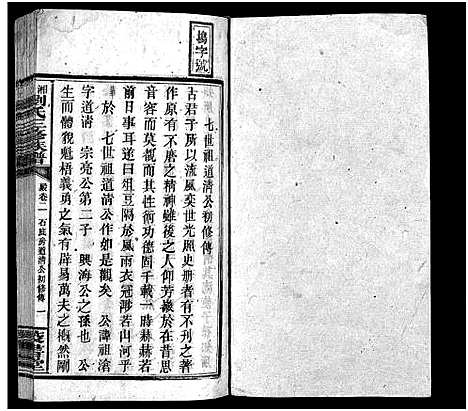 塲字號
七世祖道清公初修傳
古君子所以流風奕世光照史册者有不刊之著
作原有不磨之精神雖後之人仰芳徽於在昔思
音容而莫覩而其性功德固千載一時赫赫若
前日事耳遂曰俎豆隔於風雨衣冠渺若山河乎
於七世祖道清公作如是觀矣 公諱祖滄
字道清 宗亮公第二子 興海公之孫也 公
生而體貌魁梧義勇之名有辟易萬夫之概然剛
湘劉氏三修族譜
卷二 石氹房道清公初修傳 一